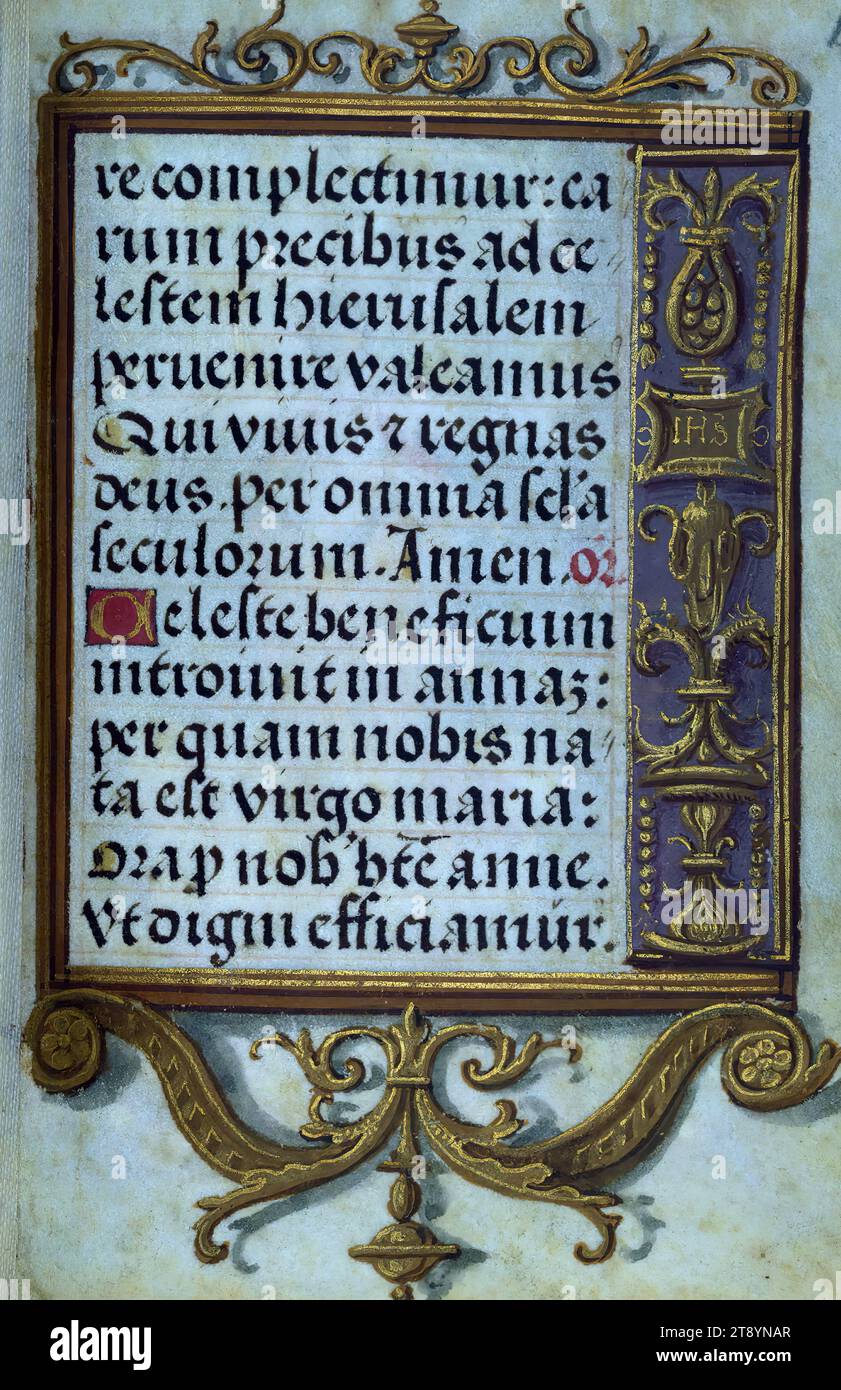 re complectimur: ea
rum precibus ad ce-
lestem hierusalem
peruenire valeamus
Qui viuis ⁊ regnas
deus. per omnia scl'a
seculorum. Amen. or.
Celeste beneficium
introiuit in annaꝫ:
per quam nobis na-
ta est virgo maria:
Ora ꝓ nob' bt̄e anne.
Vt digni efficiamur.
IHS
a
alamy
Image ID: 2T8YNAR
www.alamy.com